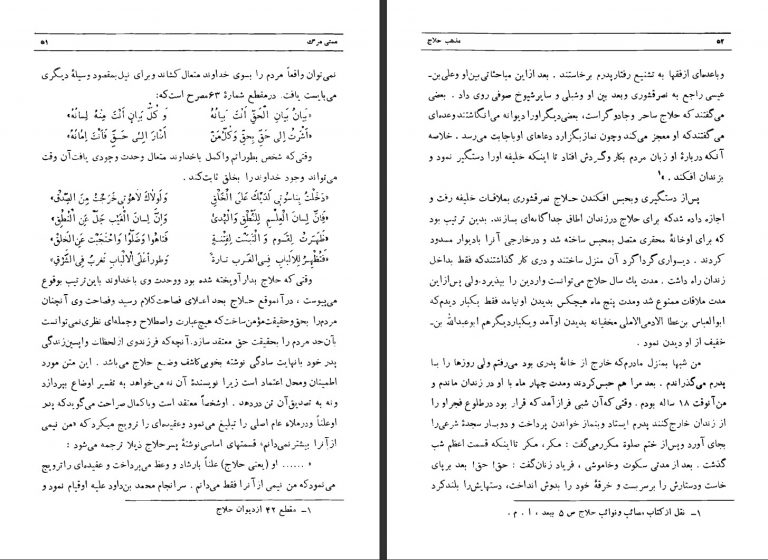 مستی مرگ ۵۱
نمی‌توان واقعاً مردم را بسوی خداوند متعال کشاند وبرای نیل بمقصود وسیلهٔ دیگری
می‌بایست یافت. درمقطع شمارهٔ ۶۳ مصرح است‌که:
«بَیانُ بَیانِ الْحَقِّ اَنْتَ بَیانُهُ وَ کُلُّ بَیانٍ اَنْتَ مِنْهُ لِسانُهُ»
«اَشَرْتُ اِلی حَقٍّ بِحَقٍّ وَکُلُّ مَنْ اَشارَ اِلی حَقٍّ فَاَنْتَ اَمانُهُ»
وقتی‌که شخص بطورأتم واکمل باخداوند متعال وحدت وجودی یافت‌آن وقت
می‌تواند وجود خداوندرا بخلق ثابت‌کند.
«دَخَلْتُ بِناسُوتی لَدَیْکَ عَلَی الْخَلْقِ وَلَوْلاکَ لاهُوتی خَرَجْتُ مِنَ الصِّدْقِ»
«فَاِنَّ لِسانَ الْعِلْمِ لِلنُّطْقِ وَالْهُدی وَاِنَّ لِسانَ الْغَیْبِ جَلَّ عَنِ النُّطْقِ»
«ظَهَرْتَ لِقَوْمٍ وَ الْتَبَسْتَ لِفِتْنَةٍ فَتاهُوا وَضَلُّوا وَاحْتَجَبْتَ عَنِ الْخَلْقِ»
«فَتَظْهَرُ لِلْاَلْبابِ فِی الْغَرْبِ تارَةً وَطوراًعَلَی الْاَلْبابِ تَغْرُبُ فِی الشَّرْقِ»
وقتی که حلاج بدارآویخته شده بود ووحدت وی باخداوند باین‌ترتیب بوقوع
می‌پیوست ، درآنموقع حلاج بحد اعلای فصاحت‌کلام رسید وفصاحت وی آنچنان
مردم‌را بحق‌وحقیقت‌مؤمن‌ساخت‌که هیچ‌عبارت واصطلاح وجمله‌ای نظری‌نمی‌توانست
بآن‌حد مردم را بحقیقت حق معتقد سازد. آنچه‌که فرزندوی ازلحظات واپسین‌زندگی
پدر خود بانهایت سادگی نوشته بخوبی‌کاشف وضع حلاج می‌باشد . این متن مورد
اطمینان ومحل اعتماد است زیرا نویسندهٔ آن نه می‌خواهد به تفسیر اوضاع بپردازد
ونه به تصدیق‌آن تن دردهد . اوشخصاً معتقد است وباکمال صراحت می‌گویدکه پدر
اوعلناً ودرملاء عام اصلی را تبلیغ می‌نمود وعقیده‌ای را ترویج میکردکه «من نیمی
ازآنرا بیشترنمی‌دانم» قسمتهای اساسی‌نوشتهٔ پسرحلاج ذیلا ترجمه می‌شود :
« ..... او (یعنی حلاج) علناً بارشاد و وعظ می‌پرداخت و عقیده‌ای راترویج
می‌نمودکه من نیمی ازآنرا فقط می‌دانم . سرانجام محمد بن‌داود علیه اوقیام نمود و
۱ـ مقطع ۴۲ ازدیوان حلاج
۵۲ مذهب حلاج
وباعده‌ای ازفقها به تشنیع رفتارپدرم برخاستند . بعد ازاین مباحثاتی‌بین‌او وعلی بن‌ـ
عیسی راجع به نصرقشوری وبعد بین او وشبلی و سایرشیوخ صوفی روی داد . بعضی
می‌گفتندکه حلاج ساحر وجادوگراست، بعضی‌دیگراورا دیوانه می‌انگاشتند وعده‌ای
می‌گفتندکه او معجز می‌کند وچون نمازبگزارد دعاهای اواجابت می‌رسد . خلاصه
آنکه دربارهٔ او زبان مردم بکار وگردش افتاد تا اینکه خلیفه اورا دستگیر نمود و
بزندان افکند .»۱
پس‌از دستگیری وبحبس افکندن حلاج نصرقشوری بملاقات خلیفه رفت و
اجازه داده شدکه برای حلاج درزندان اطاق جداگانه‌ای بسازند. بدین ترتیب بود
که برای اوخانهٔ محقری متصل بمحبس ساخته شد و درخارجی آنرا بادیوار مسدود
کردند . دیواری گرداگرد آن منزل ساختند و دری کار گذاشتندکه فقط بداخل
زندان راه داشت . مدت یك سال حلاج می‌توانست واردین را بپذیرد،ولی پس‌ازاین
مدت ملاقات ممنوع شد ومدت پنج ماه هیچکس بدیدن اونیامد فقط یکبار دیدم‌که
ابوالعباس بن‌عطا الادمی‌الاملی مخفیانه بدیدن اوآمد ویکباردیگرهم ابوعبدالله بن‌ـ
خفیف از او دیدن نمود .
من شبها بمنزل مادرم‌که خارج از خانهٔ پدری بود می‌رفتم ولی روزها را با
پدرم می‌گذراندم . بعد مرا هم حبس‌کردند ومدت چهار ماه با او در زندان ماندم و
من‌آنوقت ۱۸ ساله بودم . وقتی‌که‌آن شبی فرازآمدکه قرار بود درطلوع فجراو را
از زندان خارج‌کنند پدرم ایستاد وبنماز خواندن پرداخت و دوبار سجدهٔ شرعی‌را
بجای آورد وپس‌از ختم صلوة مکررمی‌گفت : مکر، مکر تااینکه قسمت اعظم شب
گذشت . بعد ازمدتی سکوت وخاموشی ، فریاد زنان‌گفت : حق! حق! بعد برپای
خاست ودستارش را برسربست و خرقهٔ خود را بدوش انداخت، دستهایش‌را بلندکرد
۱ـ نقل ازکتاب «مصائب ونوائب حلاج ص ۵ ببعد ، ا . م .